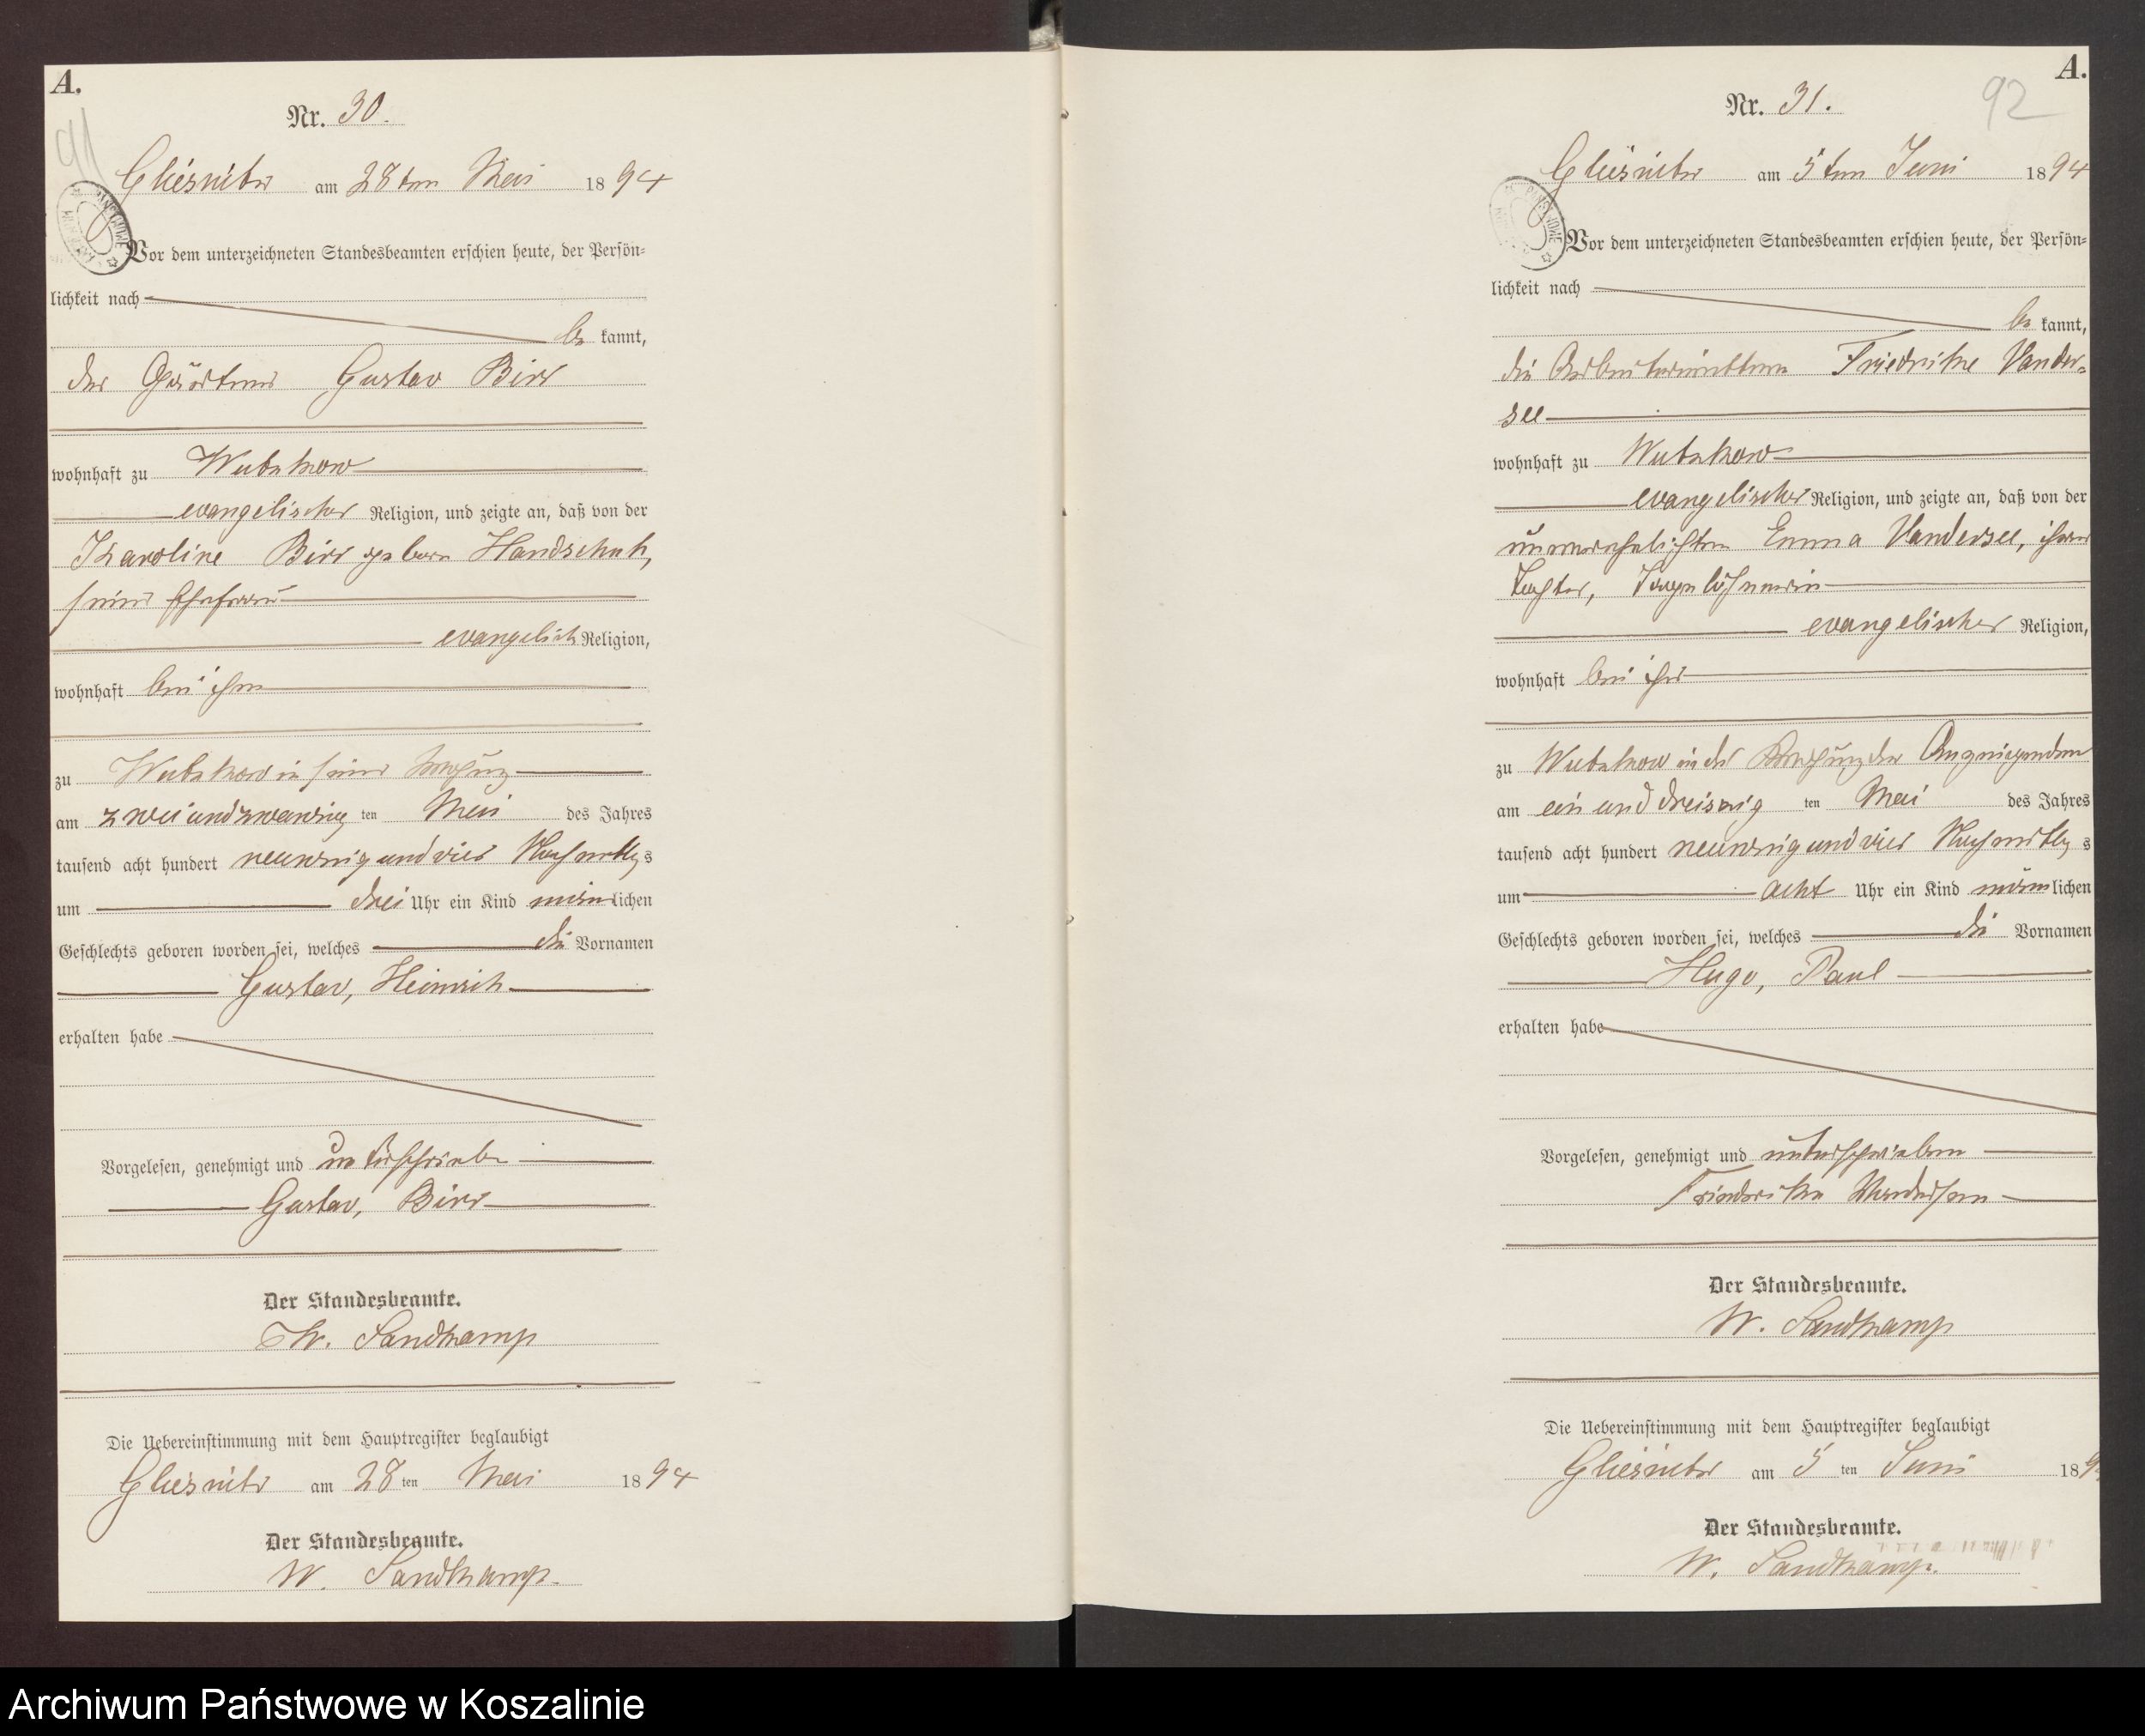 A.
Nr. 30.
91
Gliesnitz am 28ten Mai 1894
Vor dem unterzeichneten Standesbeamten erschien heute, der Persön-
lichkeit nach
be kannt,
der Gärtner Gustav Birr
wohnhaft zu Wutzkow
evangelischer Religion, und zeigte an, daß von der
Karoline Birr geborn Handschuh,
seiner Ehefrau
evangelisch Religion,
wohnhaft bei ihm
zu Wutzkow in seiner Wohnung
am zweiundzwanzig ten Mai des Jahres
tausend acht hundert neunzig und vier Nachmittags
um drei Uhr ein Kind männlichen
Geschlechts geboren worden sei, welches die Vornamen
Gustav, Heinrich
erhalten habe
Vorgelesen, genehmigt und unterschrieben
Gustav, Birr
Der Standesbeamte.
W. Sandkamp
Die Uebereinstimmung mit dem Hauptregister beglaubigt
Gliesnitz am 28 ten Mai 1894
Der Standesbeamte.
W. Sandkamp.
A.
Nr. 31.
92
Gliesnitz am 5ten Juni 1894
Vor dem unterzeichneten Standesbeamten erschien heute, der Persön-
lichkeit nach
be kannt,
die Friedrike Vander-
see
wohnhaft zu Wutzkow
evangelischer Religion, und zeigte an, daß von der
unverehelichten Emma Vandersee, ihrer
Tochter, Tagelöhnerin
evangelischer Religion,
wohnhaft bei ihr
zu Wutzkow in der Wohnung der Anzeigenden
am ein und dreiszig ten Mai des Jahres
tausend acht hundert neunzig und vier Nachmittags
um acht Uhr ein Kind männlichen
Geschlechts geboren worden sei, welches die Vornamen
Hugo, Paul
erhalten habe
Vorgelesen, genehmigt und unterschrieben
Friederike Vandersee
Der Standesbeamte.
W. Sandkamp
Die Uebereinstimmung mit dem Hauptregister beglaubigt
Gliesnitz am 5 ten Juni 189
Der Standesbeamte.
W. Sandkamp.
Archiwum Państwowe w Koszalinie